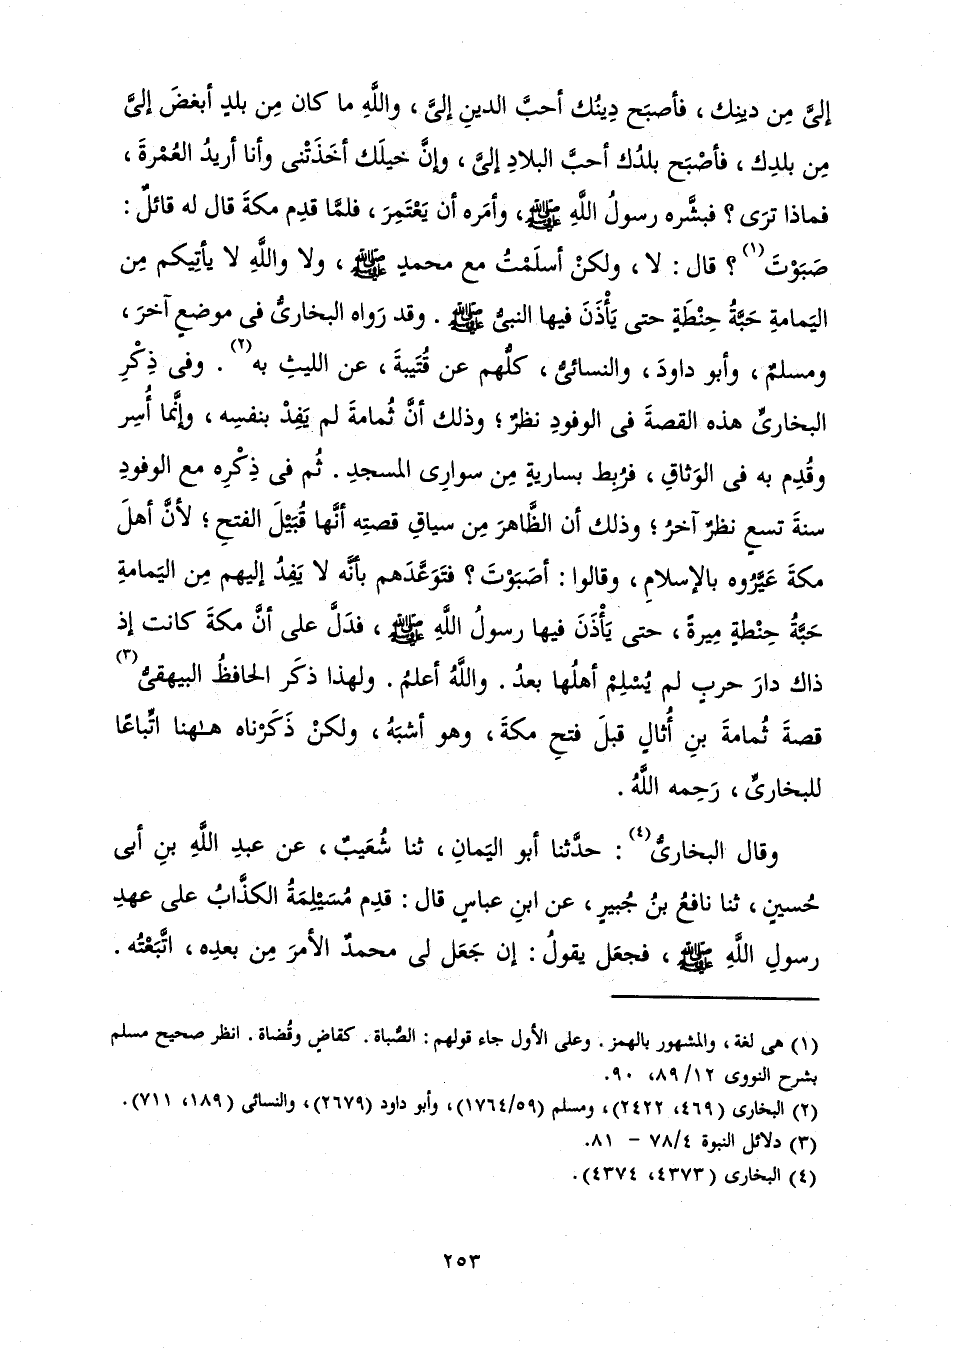 إلىَّ مِن دينِك ، فأصبَح دِينُك أحبَّ الدينِ إلىَّ ، واللَّهِ ما كان مِن بلدٍ أبغضَ إلىَّ
مِن بلدِك ، فأصْبَح بلدُك أحبَّ البلادِ إلىَّ ، وإنَّ خيلَك أخَذَتْنى وأنا أريدُ العُمْرةَ ،
فماذا ترَى ؟ فبشَّره رسولُ اللَّهِ ﷺ ، وأمَره أن يَعْتَمِرَ ، فلمَّا قدِم مكةَ قال له قائلٌ :
صَبَوْتَ(١) ؟ قال : لا ، ولكنْ أسلَمْتُ مع محمدٍ ﷺ ، ولا واللَّهِ لا يأتِيكم مِن
اليَمامةِ حَبَّةُ حِنْطَةٍ حتى يَأْذَنَ فيها النبىُّ ﷺ . وقد رَواه البخارىُّ فى موضعٍ آخرَ ،
ومسلمٌ ، وأبو داودَ ، والنسائىُّ ، كلُّهم عن قُتَيبةَ ، عن الليثِ به(٢) . وفى ذِكْرِ
البخارىِّ هذه القصةَ فى الوفودِ نظرٌ ؛ وذلك أنَّ ثُمامةَ لم يَفِدْ بنفسِه ، وإنَّما أُسِر
وقُدِم به فى الوَثاقِ ، فرُبِط بساريةٍ مِن سوارِى المسجدِ . ثُم فى ذِكْرِه مع الوفودِ
سنةَ تسعٍ نظرٌ آخرُ ؛ وذلك أن الظَّاهرَ مِن سياقِ قصتِه أنَّها قُبَيْلَ الفتحِ ؛ لأنَّ أهلَ
مكةَ عَيَّرُوه بالإسلامِ ، وقالوا : أصَبَوْتَ ؟ فتَوَعَّدَهم بأنَّه لا يَفِدُ إليهم مِن اليَمامةِ
حَبَّةُ حِنْطةٍ مِيرةً ، حتى يَأْذَنَ فيها رسولُ اللَّهِ ﷺ ، فدَلَّ على أنَّ مكةَ كانت إذ
ذاك دارَ حربٍ لم يُسْلِمْ أهلُها بعدُ . واللَّهُ أعلمُ . ولهذا ذكَر الحافظُ البيهقىُّ(٣)
قصةَ ثُمامةَ بنِ أُثالٍ قبلَ فتحِ مكةَ ، وهو أشبَهُ ، ولكنْ ذَكَرْناه هـٰهنا اتِّباعًا
للبخارىِّ ، رَحِمه اللَّهُ .
وقال البخارىُّ(٤) : حدَّثنا أبو اليَمانِ ، ثنا شُعَيبٌ ، عن عبدِ اللَّهِ بنِ أبى
حُسينٍ ، ثنا نافعُ بنُ جُبيرٍ ، عن ابنِ عباسٍ قال : قدِم مُسَيْلِمَةُ الكذَّابُ على عهدِ
رسولِ اللَّهِ ﷺ ، فجعَل يقولُ : إن جَعَل لى محمدٌ الأمرَ مِن بعدِه ، اتَّبَعْتُه .
(١) هى لغة ، والمشهور بالهمز . وعلى الأول جاء قولهم : الصُّباة . كقاضٍ وقُضاة . انظر صحيح مسلم
بشرح النووى ١٢/ ٨٩، ٩٠.
(٢) البخارى (٤٦٩، ٢٤٢٢)، ومسلم (١٧٦٤/٥٩)، وأبو داود (٢٦٧٩)، والنسائى (١٨٩، ٧١١).
(٣) دلائل النبوة ٧٨/٤ - ٨١.
(٤) البخارى (٤٣٧٣، ٤٣٧٤).
٢٥٣